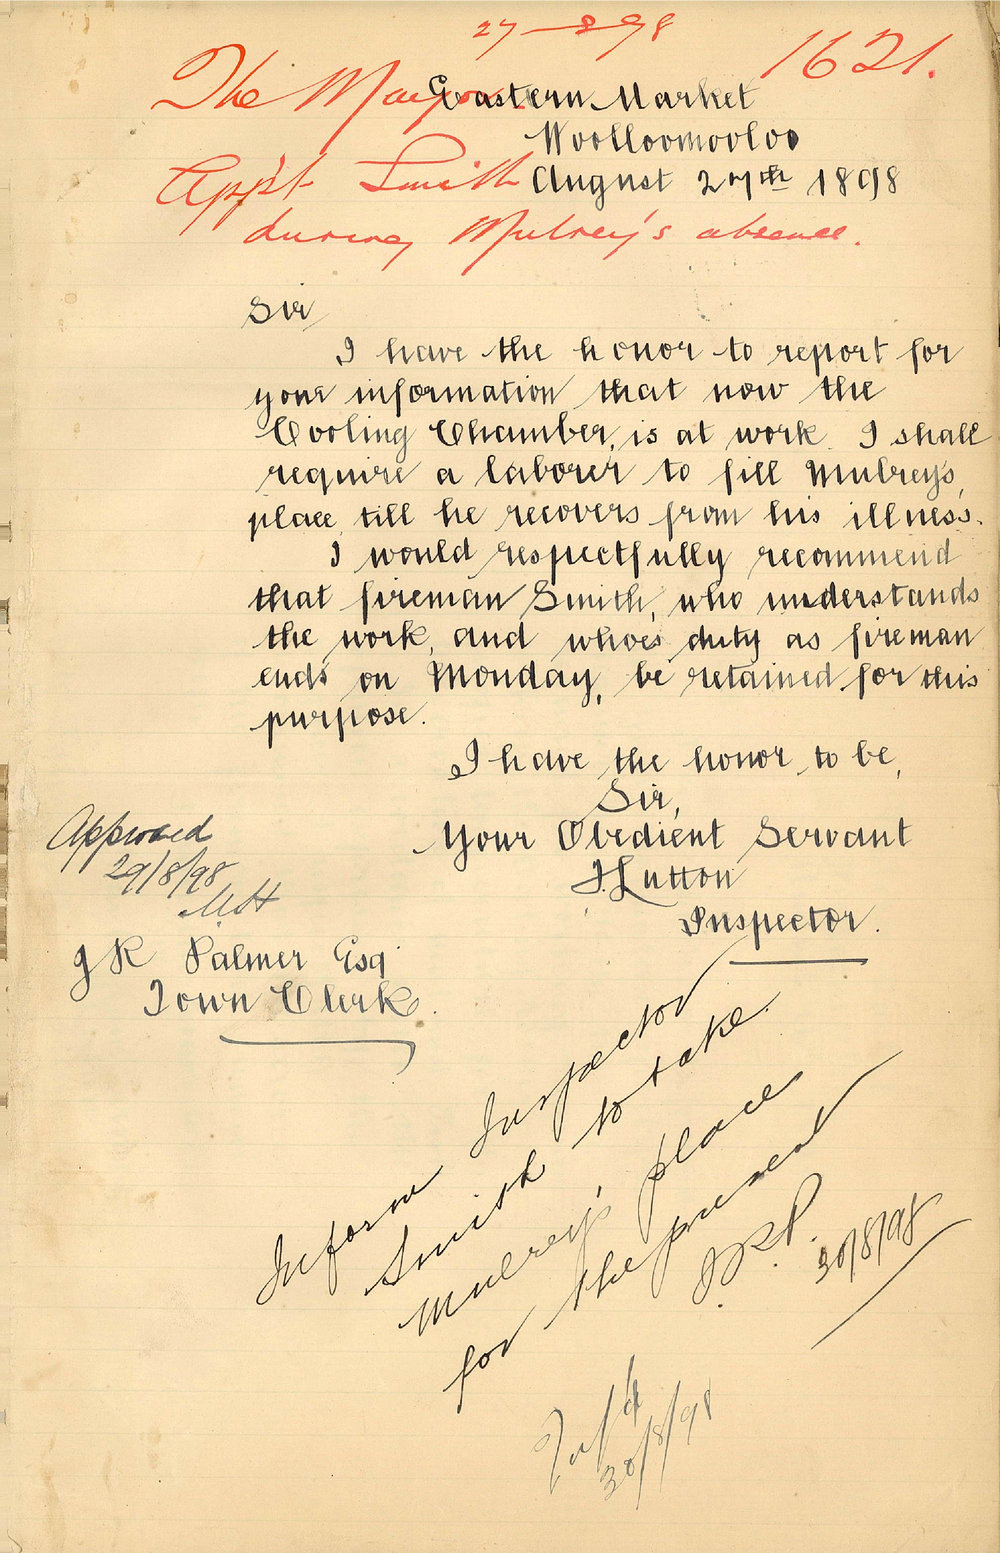 27-8-98
1621.
The Mayor
Eastern Market
Woolloomooloo
August 27th 1898
App't Smith
during Mulrey's absence.
Sir
I have the honor to report for
your information that now the
Cooling Chamber, is at work. I shall
require a laborer to fill Mulrey's,
place, till he recovers from his illness.
I would respectfully recommend
that fireman Smith, who understands
the work, and whoes duty as fireman
ends on Monday, be retained for this
purpose.
I have the honor to be,
Sir,
Your Obedient Servant
Lutton
Inspector.
Approved
29/8/98
J R Palmer Esq
Town Clerk.
Inform Inspector
Smith to take
Mulrey's place
for the present
JRP.
30/8/98
30/8/98